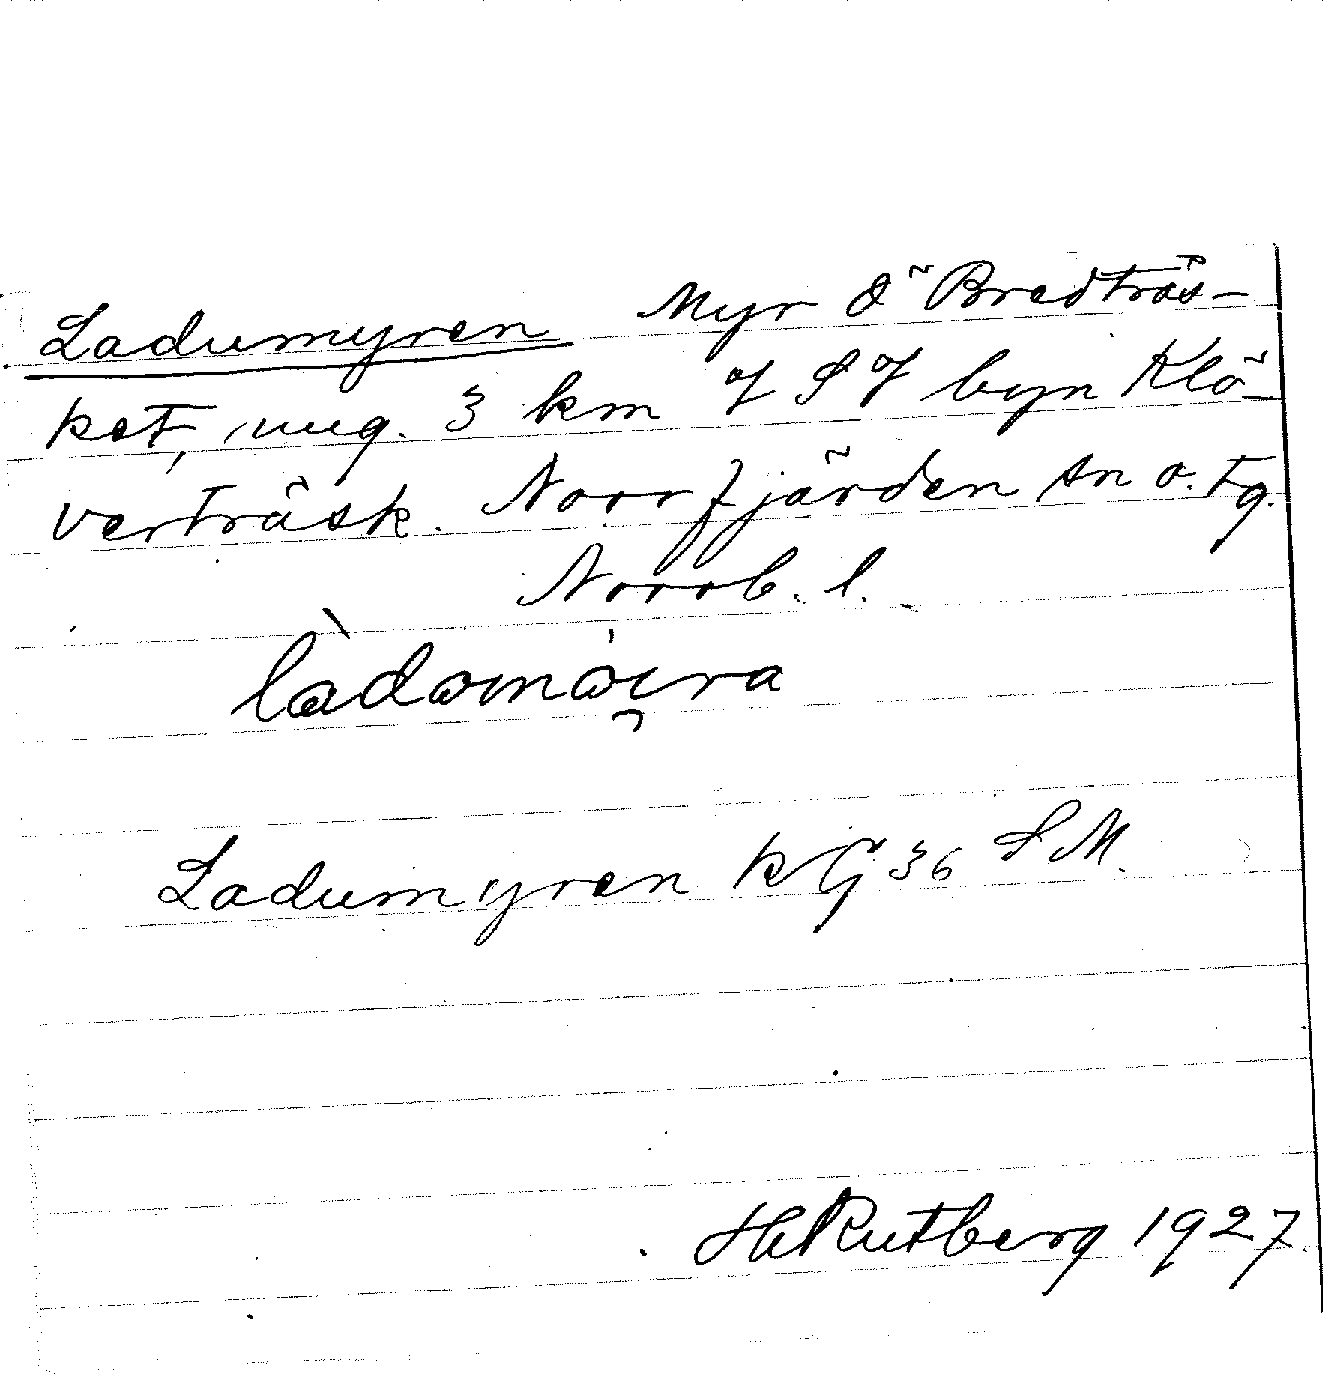 Ladumyren Myr ö Bredträs-
ket, ung. 3 km af S af byn Klö-
verträsk. Norrfjärden sn o. tg.
Norrb. l.
Ladumyren kG 36 S M.
HRutberg 1927